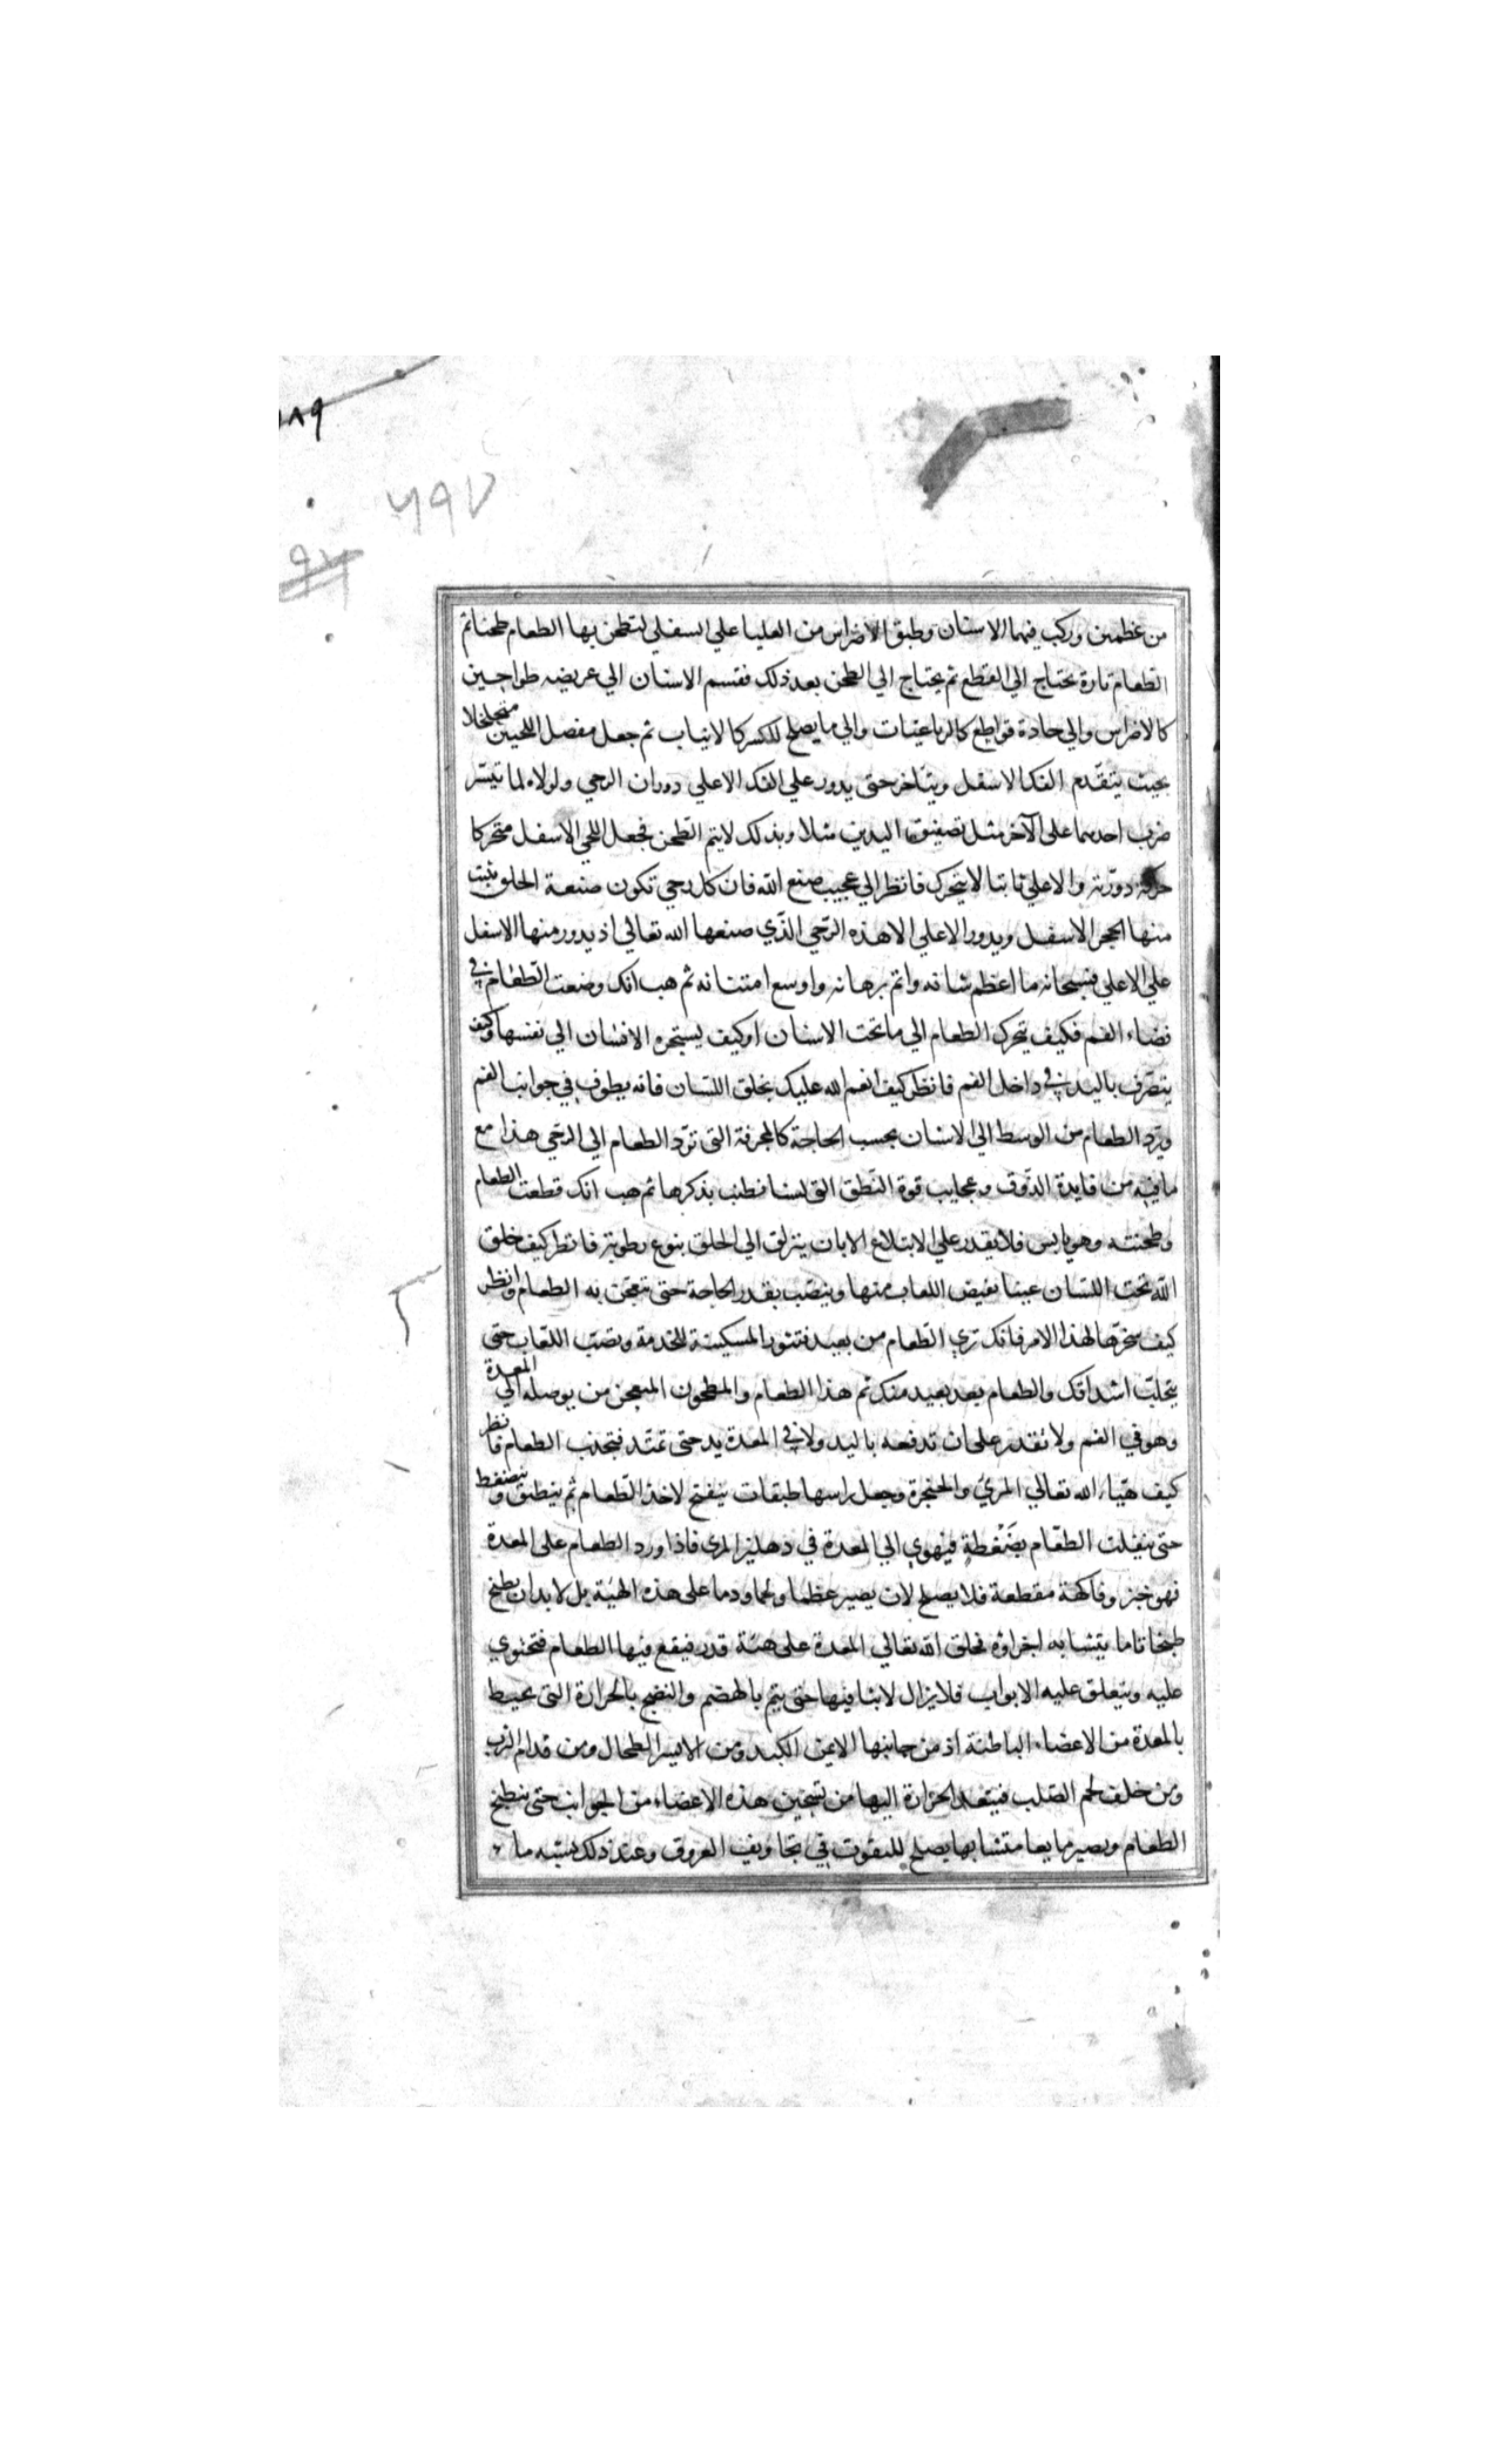 ١٨٩
٥٩٧
من عظمين وركب فيهما الاسنان وطبق الاضراس من العليا علي السفلي لتطحن بها الطعام طحنا ثم
الطعام تارة يحتاج الي القطع ثم يحتاج الي الطحن بعد ذلك فقسم الاسنان الي عريضه طواحين
كالاضراس والي حادة قواطع كالرباعيات والي ما يصلح للكسر كالانياب ثم جعل مفصل اللحيين متخلخلا
بحيث يتقدم الفك الاسفل ويتاخر حتى يدور علي الفك الاعلي دوران الرحي ولولاه لما تيسر
ضرب احديهما على الآخر مثل تصفيق اليدين مثلا وبذلك لا يتم الطحن فجعل اللحي الاسفل متحركا
حركة دورية والاعلي ثابتا لا يتحرك فانظر الي عجيب صنع الله فان كل رحي تكون صنعة الخلق يثبت
منها الحجر الاسفل ويدور الاعلي الا هذه الرحي الذي صنعها الله تعالي اذ يدور منها الاسفل
علي الاعلي فسبحانه ما اعظم شانه واتم برهانه واوسع امتنانه ثم هب انك وضعت الطعام في
فضاء الفم فكيف يتحرك الطعام الي ما تحت الاسنان او كيف يستجره الانسان الي نفسها وكيف
يتصرف باليد في داخل الفم فانظر كيف انعم الله عليك بخلق اللسان فانه يطوف في جوانب الفم
ويرد الطعام من الوسط الي الاسنان بحسب الحاجة كالمجرفة التي ترد الطعام الي الرحي هذا مع
ما فيه من فايدة الذوق وعجايب قوة النطق التي لسنا نطنب بذكرها ثم هب انك قطعت الطعام
وطحنته وهو يابس فلا يقدر علي الابتلاع الا بان ينزلق الي الحلق بنوع رطوبة فانظر كيف خلق
الله تحت اللسان عينا يفيض اللعاب منها وينصب بقدر الحاجة حتى يتعجن به الطعام وانظر
كيف سخرها لهذا الامر فانك تري الطعام من بعيد فتثور المسكينة للخدمة وتصب اللعاب حتى
يتحلب اشداقك والطعام بعد بعيد منك ثم هذا الطعام والمطحون المنعجن من يوصله الي المعدة
وهو في الفم ولا تقدر على ان تدفعه باليد ولا في المعدة يد حتى تمتد فتجذب الطعام فانظر
كيف هيّاء الله تعالي المرئ والحنجرة وجعل راسها طبقات ينفتح لاخذ الطعام ثم ينطبق وينضغط
حتى يتقلب الطعام بضَغْطةٍ فيهوي الي المعدة في دهليز المرى فاذا ورد الطعام على المعدة
فهو خبز وفاكهة مقطعة فلا يصلح لان يصير عظما ولحما ودما على هذه الهيئة بل لا بد ان يطبخ
طبخا تاما يتشابه اجزاؤه فخلق الله تعالي المعدة على هيئة قدر فيقع فيها الطعام فتحتوي
عليه ويتعلق عليه الابواب فلا يزال لابثا فيها حتى يتم بالهضم والنضج بالحرارة التي يحيط
بالمعدة من الاعضاء الباطنة اذ من جانبها الايمن الكبد ومن الايسر الطحال ومن قدام الثرب
ومن خلف لحم الصلب فيتعدا الحرارة اليها من تسخين هذه الاعضاء من الجوانب حتى ينطبخ
الطعام ويصير مايعا متشابها يصلح للنفوذ في تجاويف العروق وعند ذلك يشبه ما